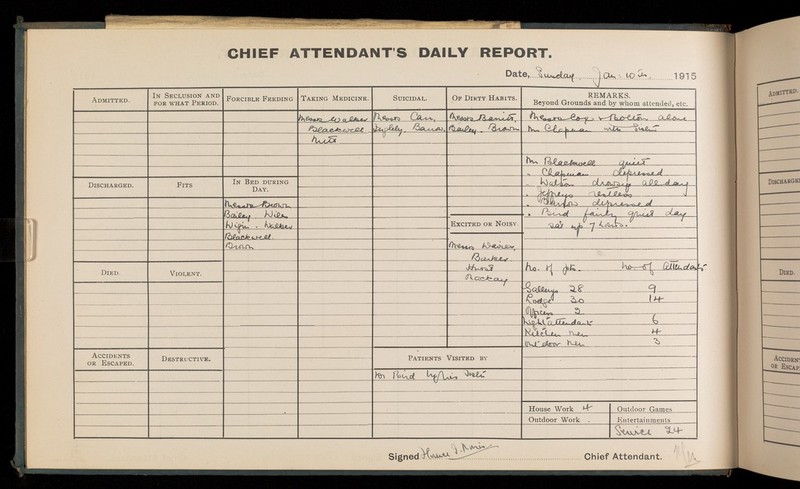 CHIEF ATTENDANT'S DAILY REPORT.
Date, Sunday. Jan. 10th. 1915
ADMITTED.
IN SECLUSION AND FOR WHAT PERIOD.
FORCIBLE FEEDING
TAKING MEDICINE.
SUICIDAL.
OF DIRTY HABITS.
REMARKS.
Beyond Grounds and by whom attended, etc.
Messrs Walker
Blackwell
Messrs Carr,
Messrs
Bailey. Brown
Messrs Cox + alone
Mr Chapman with
Mr Blackwell quiet
" Chapman depressed
" Watson drowsy all day
" Jeffreys restless
" depressed
" Bird fairly quiet day
sat up 7 hours.
DISCHARGED.
FITS
IN BED DURING DAY.
Messrs Brown
Bailey. Niles
Walker
Blackwell.
Brown
EXCITED OR NOISY.
Messrs
Barker
Hurst
Mackay
DIED.
VIOLENT.
No. of pts. No of Attendants
Gallery 28 9
Lodge 30 14
Officers 2
Night attendants 6
Kitchen Men 4
Out door Men 3
ACCIDENTS OR ESCAPED.
DESTRUCTIVE.
PATIENTS VISITED BY
Mr Bird by his
House Work 4
Outdoor Games
Outdoor Work .
Entertainments
Service 24
Signed
Chief Attendant.
ADMITTED.
DISCHARGE
DIED.
ACCIDEN
OR ESCAP